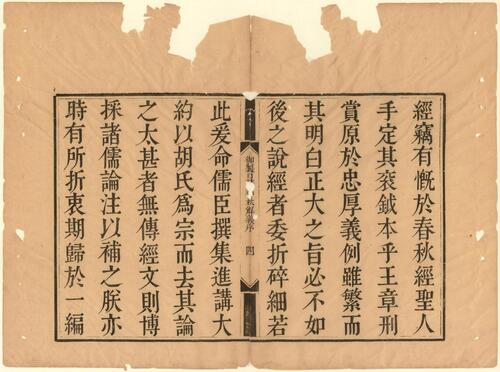 經竊有慨於春秋經聖人
手定其袞鉞本乎王章刑
賞原於忠厚義例雖繁而
其明白正大之旨必不如
後之說經者委折碎細若
御製日 秋解義序 四
此爰命儒臣撰集進講大
約以胡氏爲宗而去其論
之太甚者無傳經文則博
採諸儒論注以補之朕亦
時有所折衷期歸於一編